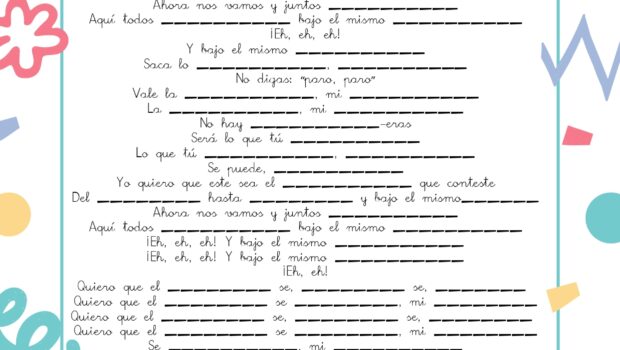 Ahora nos vamos y juntos ____________
Aquí todos ____________ bajo el mismo ____________
¡Eh, eh, eh!
Y bajo el mismo ____________
Saca lo ____________, ____________
No digas: "paro, paro"
Vale la ____________, mi ____________
La ____________, mi ____________
No hay ____________-eras
Será lo que tú ____________
Lo que tú ____________, ____________
Se puede, ____________
Yo quiero que este sea el ____________ que conteste
Del ____________ hasta ____________ y bajo el mismo____________
Ahora nos vamos y juntos ____________
Aquí todos ____________ bajo el mismo ____________
¡Eh, eh, eh! Y bajo el mismo ____________
¡Eh, eh, eh! Y bajo el mismo ____________
¡Eh, eh!
Quiero que el ____________ se, ____________ se, ____________
Quiero que el ____________ se ____________, mi ____________
Quiero que el ____________ se, ____________ se, ____________
Quiero que el ____________ se ____________, mi ____________
Se ____________, mi ____________